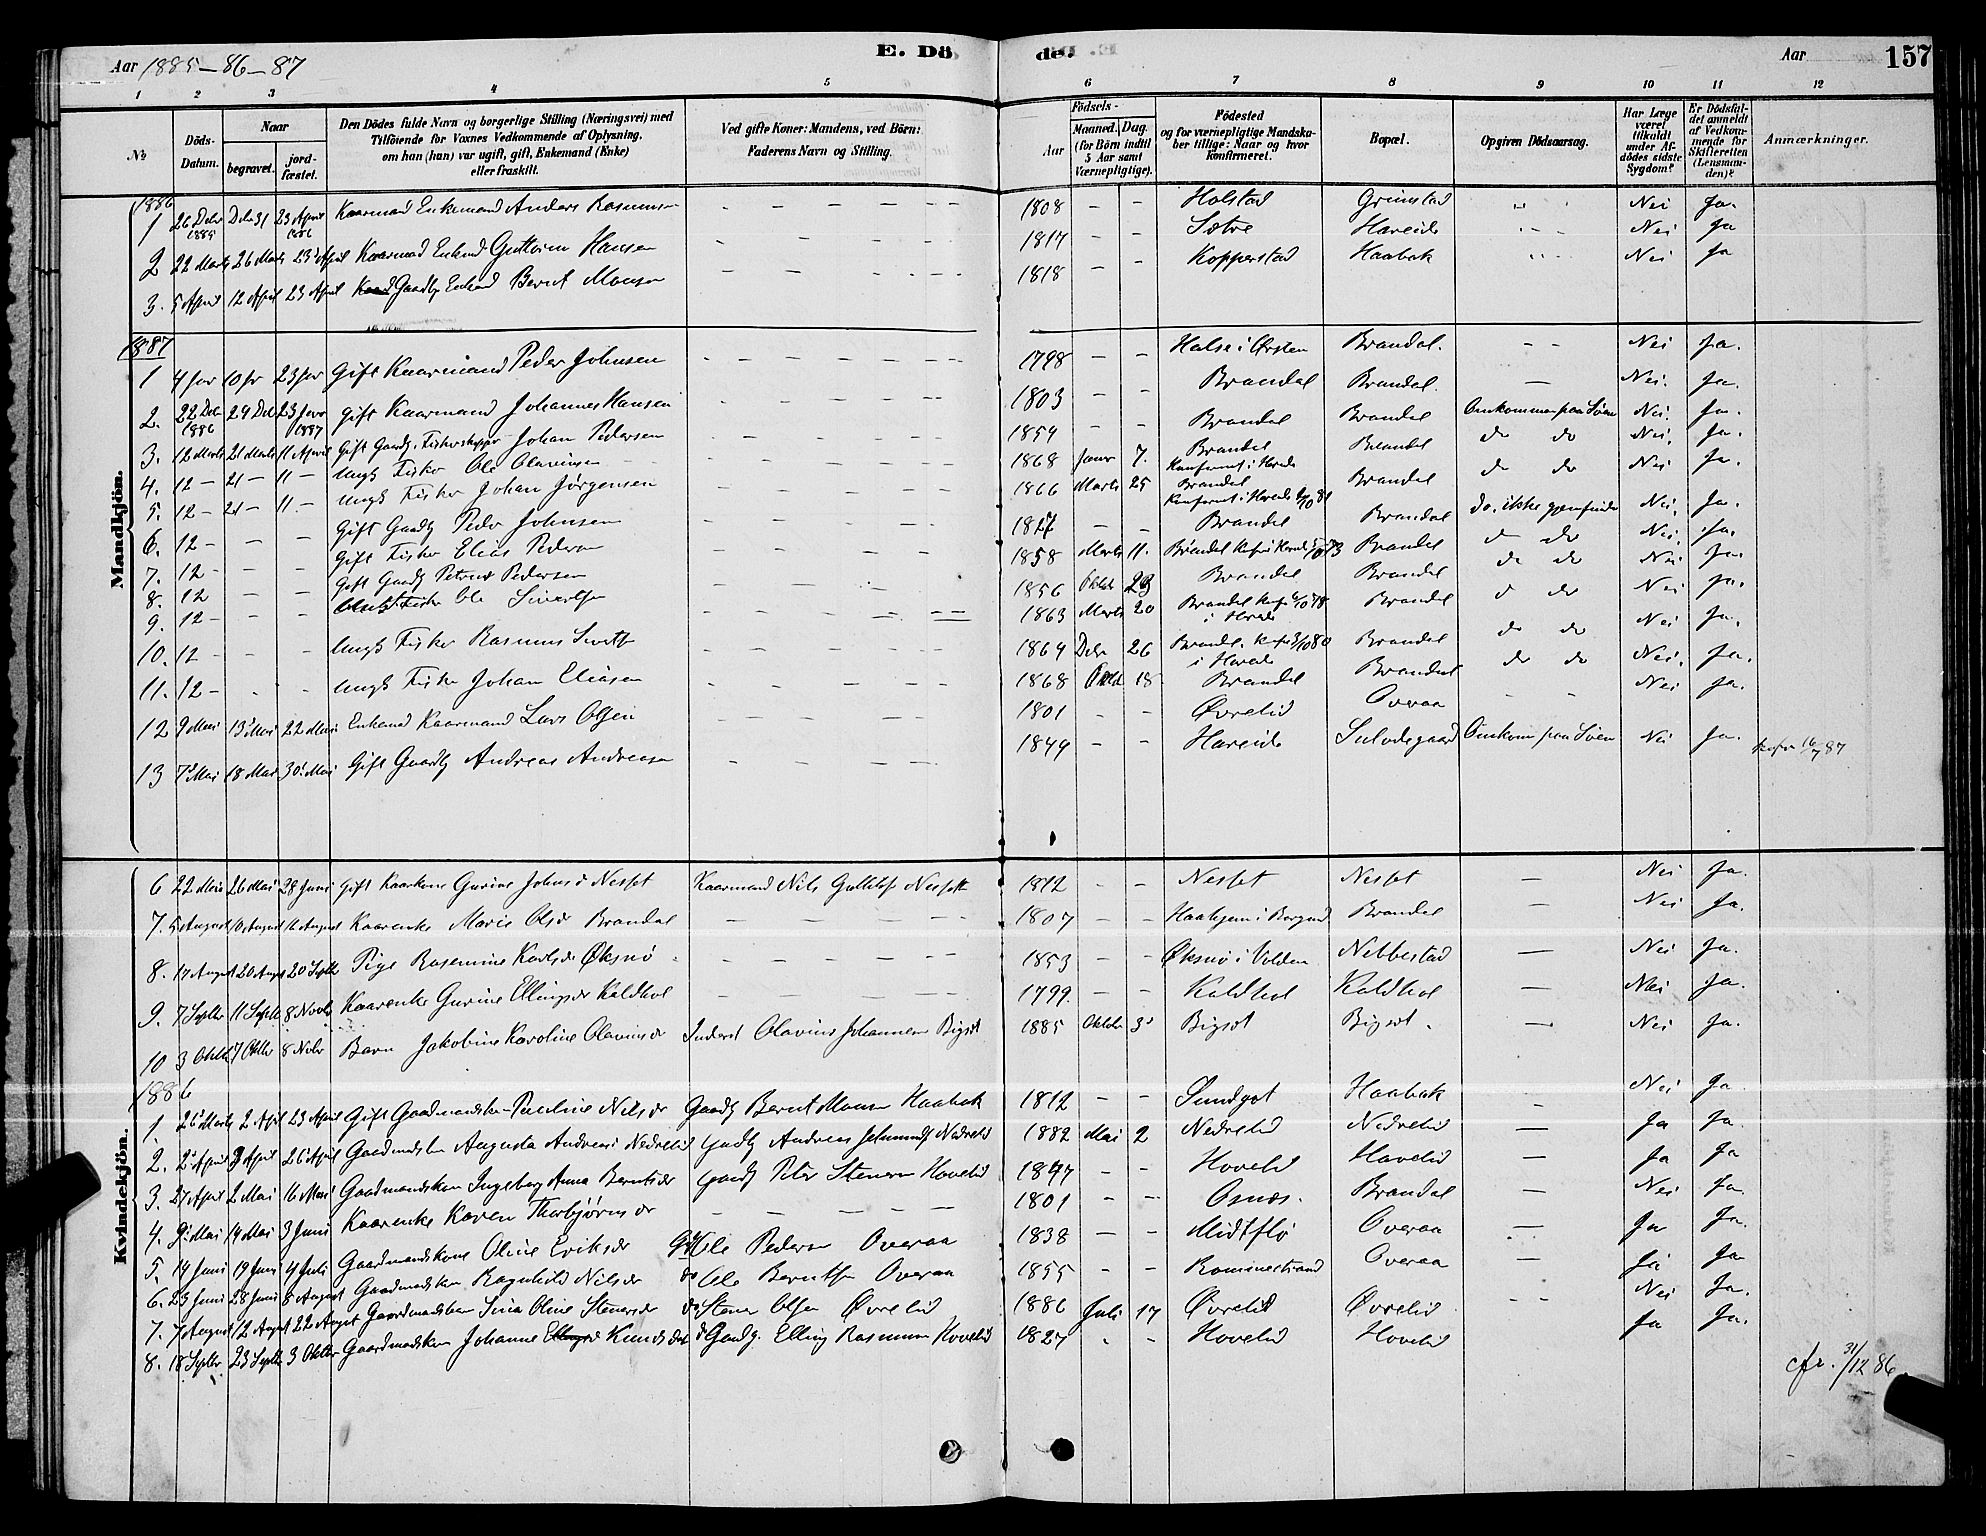 Aar 1885-86-87 E. Dö de. Aar 157
1 2 3 4 5 6 7 8 9 10 11 12
No Döds-Datum. Naar begravet. jordfæstet. Den Dödes fulde Navn og borgerlige Stilling (Næringsvei) med Tilföiende for Voxnes Vedkommende af Oplysning, om han (hun) var ugift, gift, Enkemand (Enke) eller fraskilt. Ved gifte Koner: Mandens, ved Börn: Faderens Navn og Stilling. Aar Födsels- Maaned. Dag. (for Börn indtil 5 Aar samt Værnepligtige). Födested og for værnepligtige Mandskaber tillige: Naar og hvor konfirmeret. Bopæl. Opgiven Dödsaarsag. Har Læge været tilkaldt under Afdödes sidste Sygdom? Er Dödsfaldet anmeldt af Vedkommende for Skifteretten (Lensmanden)? Anmærkninger.
Mandkjön.
1886
1 26 Debr 1885 Debr 31 23 April 1886 Kaarmand Enkemand Anders Rasmussen - - - - - - 1808 - - Holstad Grimstad " " Nei Ja.
2 22 Marts 26 Marts 23 April Kaarmand Enkmd Guttorm Hansen - - - - - - 1817 - - Sætre Hareide " - Nei Ja
3. 5 April 12 April 23 April Gaardbr Enkmd Bernt Monsen - - - - - - 1818 - - Kopperstad Haabak " - Nei Ja
1887
1 4 Jan 10 Jan 23 Jan Gift Kaarmand Peder Johnsen - - - - - - 1798 - - Halse i Ørsten Brandal. - - Nei Ja.
2. 22 Debr 1886 29 Deb 23 Janr 1887 gift Kaarmand Johannes Hansen - - - - - - 1803 - - Brandal Brandal. - Nei. Ja.
3. 12 Marts 21 Marts 11 April Gift Gaardb. Fiskerskipper Johan Pedersen - - - - - - 1854 - - Brandal Brandal Omkommen paa Søen Nei Ja.
4. 12 - 21 - 11 - Ungk Fisker Ole Olavsen - - - - - 1868 Janr 7. Brandal Konfirmt i Hareide Brandal do do Nei, Ja.
5. 12 - 21 - 11 - Ungk Fisker Johan Jörgensen - - - - - - 1866 Marts 25 Brandal Konfirmt i Hareide 2/10 81 Brandal do do Nei Ja.
6. 12 - - - Gift Gaardb Peder Johnsen - - - - - - 1827 - - Brandal Brandal do. ikke gjenfunden Nei, Ja.
7. 12 - - - Gift Fisker Elias Pedersen - - - - - - 1858 Marts 11. Brandal Konf i Hareide 5/10 73 Brandal do do Nei, Ja.
8. 12 - - Gift Gaardb Petrus Pedersen - - - - - - 1856 Oktbr 23 Brandal Brandal do do Nei Ja.
9. 12 - - - Fisker Ole Sivertsen - - - - - 1863 Marts 20 Brandal Konf 6/10 78 i Hareide Brandal do do Nei Ja.
10. 12 - - - Ungk Fisker Rasmus Sivertsen - - - - - - 1864 Debr 26 Brandal. Konf 3/10 80 i Hareide Brandal do do Nei Ja.
11. 12 - - - Ungk Fisker Johan Eliasen - - - - - - 1868 Oktbr 18 Brandal Brandal do do Nei. Ja.
12 9 Mai 13 Mai 22 Mai Enkemd Kaarmand Lars Olsen - - - - - - 1801 - - Øvrelid Overaa - - Nei Ja.
13 7 Mai 18 Mai 30 Mai Gift Gaardb Andreas Andreasen - - - - - - 1849 - - Hareide Omkom paa Søen Nei Ja. 16/7 87
Kvindekjön.
6 22 Mai 26 Mai 28 Juni Gift Kaarkone Gurine Johnsdr Nesset Kaarmand Nils Nesset 1812 - - Nesset Nesset - Nei Ja.
7. 5 August 10 August 16 August Kaarenke Marie Olsdr Brandal - - - - - 1807 - - Haahjem i Borgund Brandal - Nei Ja.
8. 17 August 20 Augst 20 Septbr Pige Rasmine Karlsdr Øksnö - - - - - 1853 - - Øksnö i Volden Nebbestad - Nei Ja.
9. 7 Septbr 11 Septbr 8 Novbr Kaarenke Gurine Ellingsdr Kaldhol - - - - - 1799. - - Kaldhol Kaldhol - Nei Ja.
10 3 Oktbr 7 Oktbr 8 Novbr Barn Jakobine Karoline Olavinsdr Inderst Olavius Johannesen Bigset 1885 Oktobr 3 Bigset Bigset. - Nei Ja.
1886
1 26 Marts 2 April 23 April Gift Gaardmandskone Pauline Nilsdr Gaardb Bernt Monsen Haabak 1812 - - Sundgot Haabak - Nei Ja.
2. 2 April 9 April 26 April Gaardmdsbn Augusta Andreasdr Nedrelid Gaardb Andreas Nedrelid 1882 Mai 2 Nedrelid Nedrelid - Ja Ja.
3. 27 April 2 Mai 16 Mai Gaardmandskon Ingeborg Anna Berntsdr Gaardb Peter Stenersen Hovelid 1847 - - Hovelid Hovelid - Ja Ja
4. 9 Mai 14 Mai 3 Juni Kaarenke Karen Thorbjörnsdr - - - - - 1801 - - Osnæs. Brandal - Nei Ja.
5. 14 Juni 19 Juni 4 Juli Gaardmandskone Oline Eriksdr Gdb Ole Pedersen Overaa 1838 - - Midtflö Overaa - Ja Ja.
6. 23 Juni 28 Juni 8 August Gaardmandskon Ragnhild Nilsdr do Ole Berntsen Overaa 1855 - - Rommestrand Overaa - Ja Ja
7. 7 August 12 Augst 22 Augst Gaardmandsbarn Sina Oline Stenersdr do Stener Olsen Øvrelid 1886 Juli 17 Øvrelid Øvrelid - - Nei Ja.
8. 18 Septbr 23 Septbr 3 Oktbr Gaardmandskon Johanne Knudsdat do Gaardb. Elling Rasmussen Hovelid 1827 - - Hovelid Hovelid Ja Ja. cfr. 31/12 86